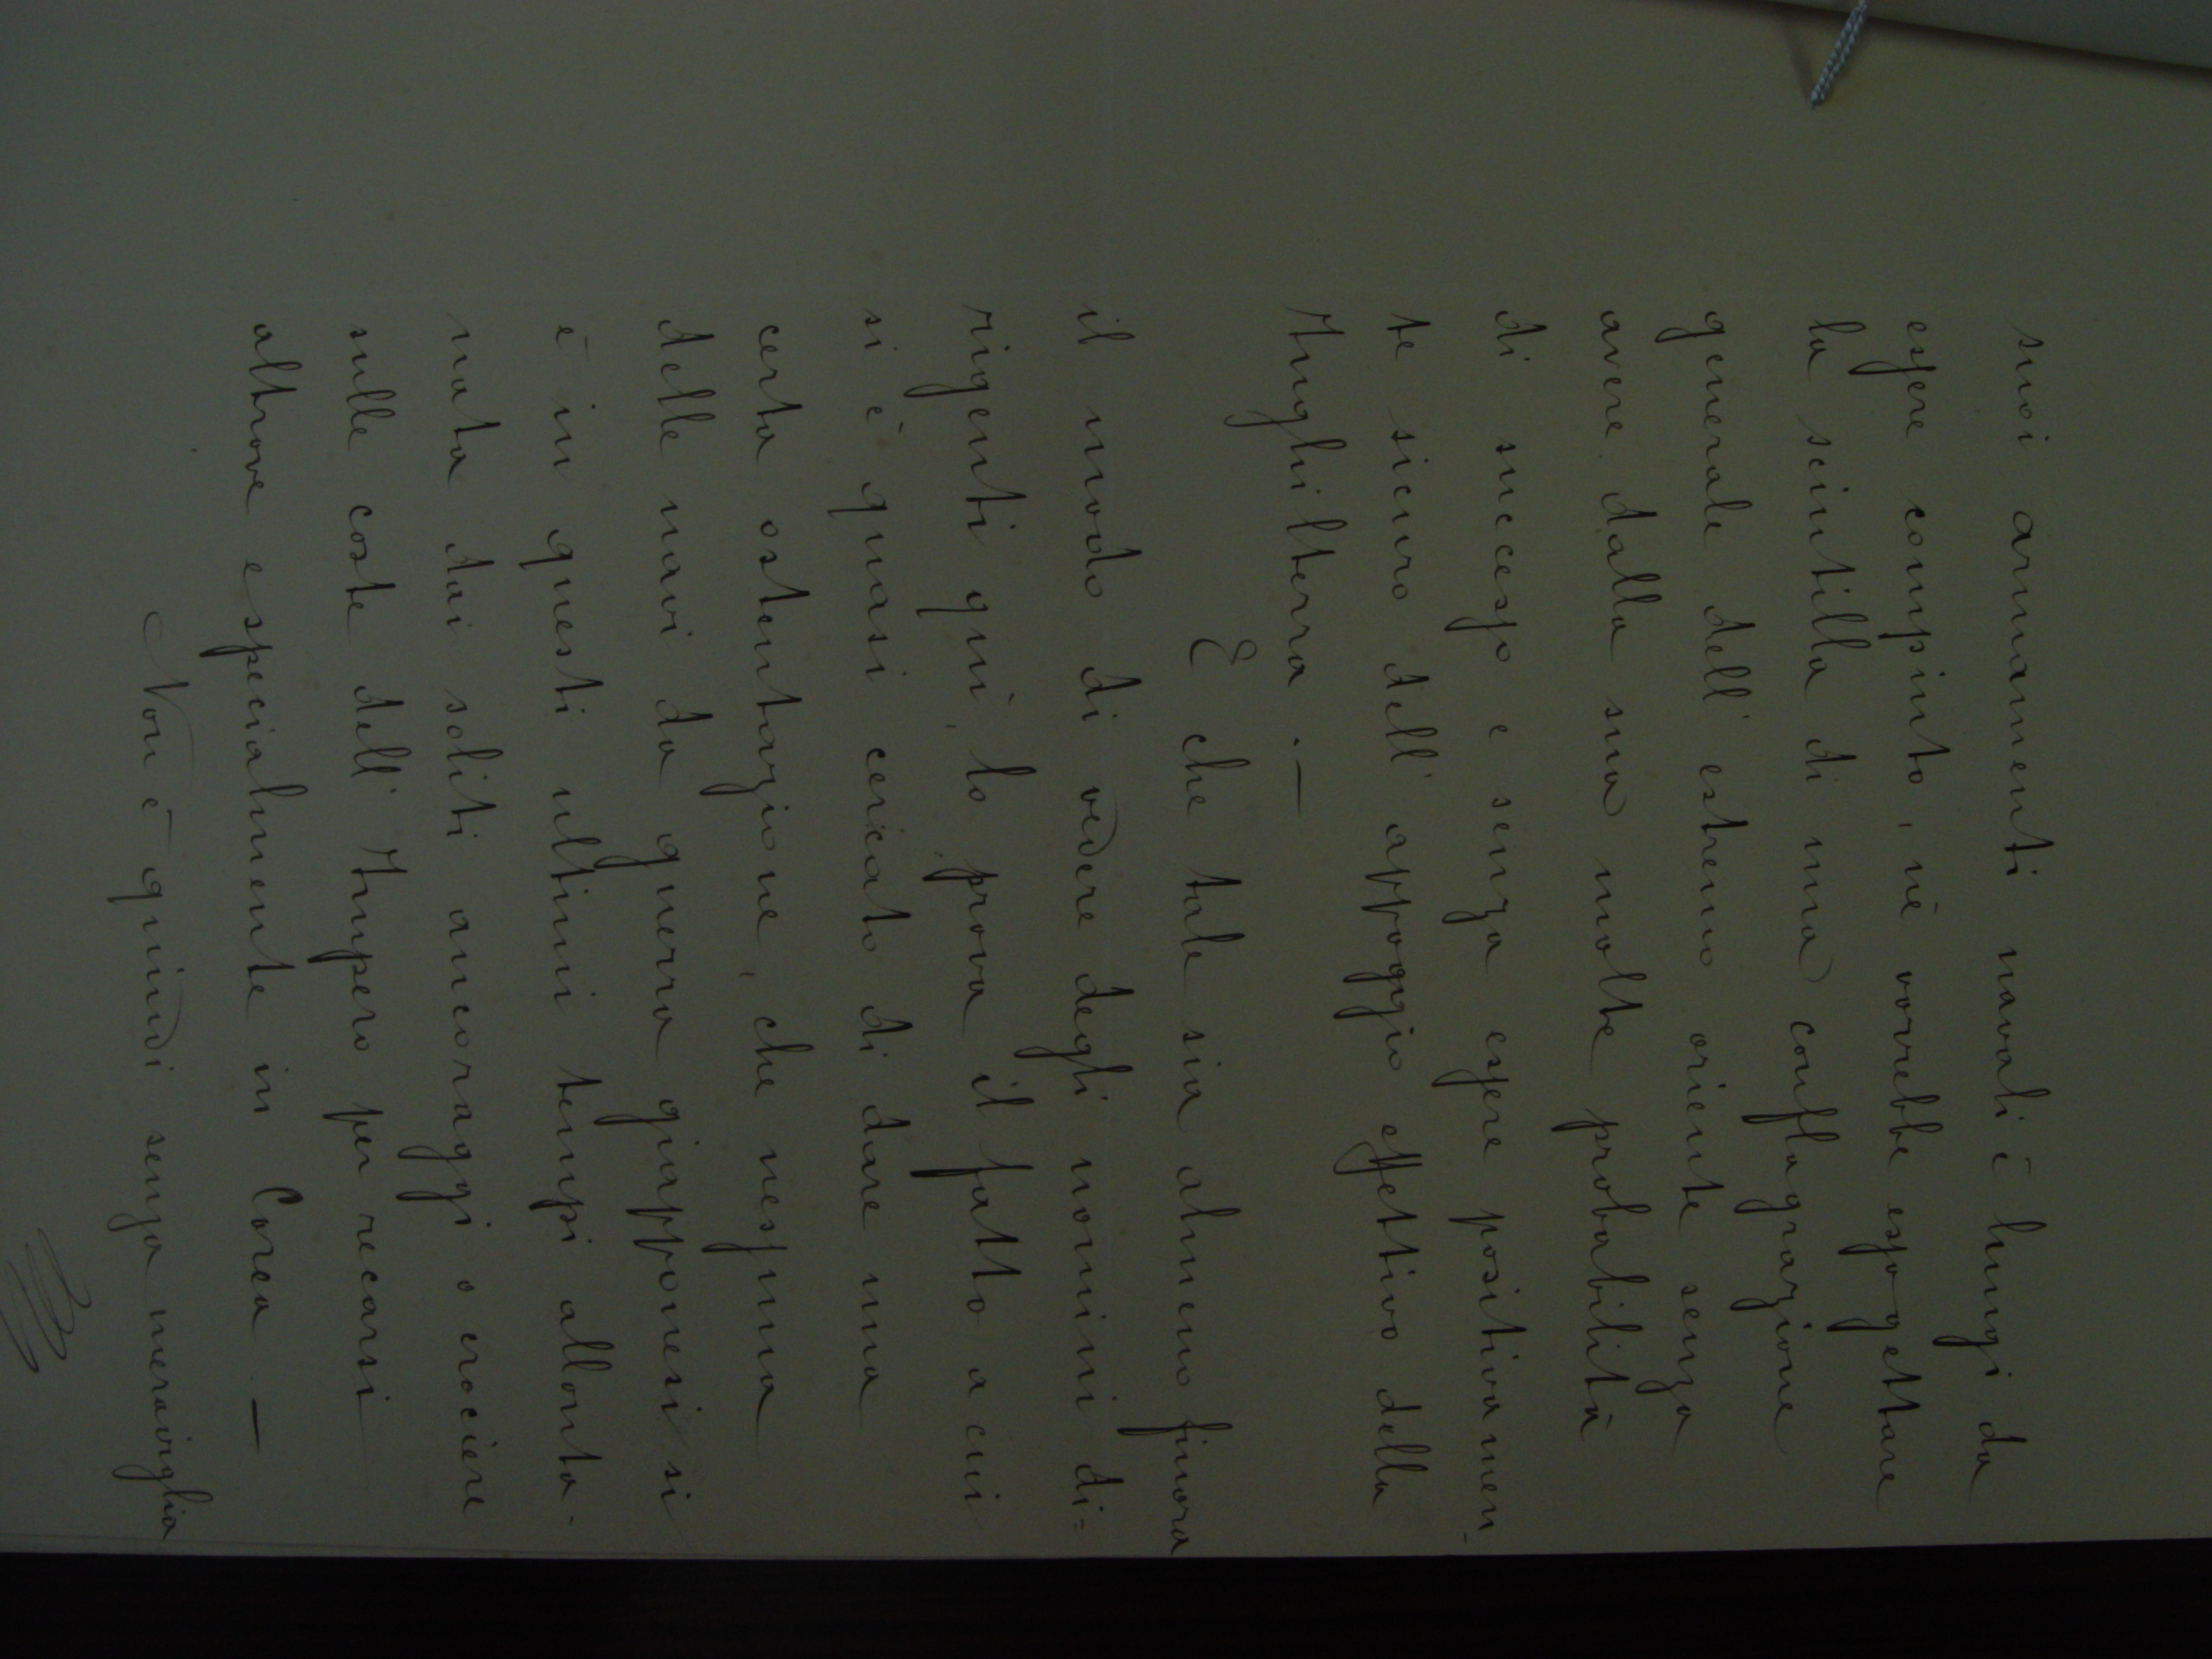 suoi armamenti navali è lungi da
essere compiuto, nè vorrebbe essogettare
la scintilla di una conflagrazione
generale dell'estremo oriente senza
avere dalla sua molte probabilità
di successo e senza essere positivamen-
te sicuro dell'appoggio effettivo della
Inghilterra. —
E che tale sia almeno finora
il modo di vedere degli uomini di=
rigenti quì, lo prova il fatto a cui
si è quasi cercato di dare una
certa ostentazione, che nessuna
delle navi da guerra giapponesi si
è in questi ultimi tempi allonta-
nata dai soliti ancoraggi o crociere
sulle coste dell'Impero per recarsi
altrove e specialmente in Corea. —
Non è quindi senza meraviglia